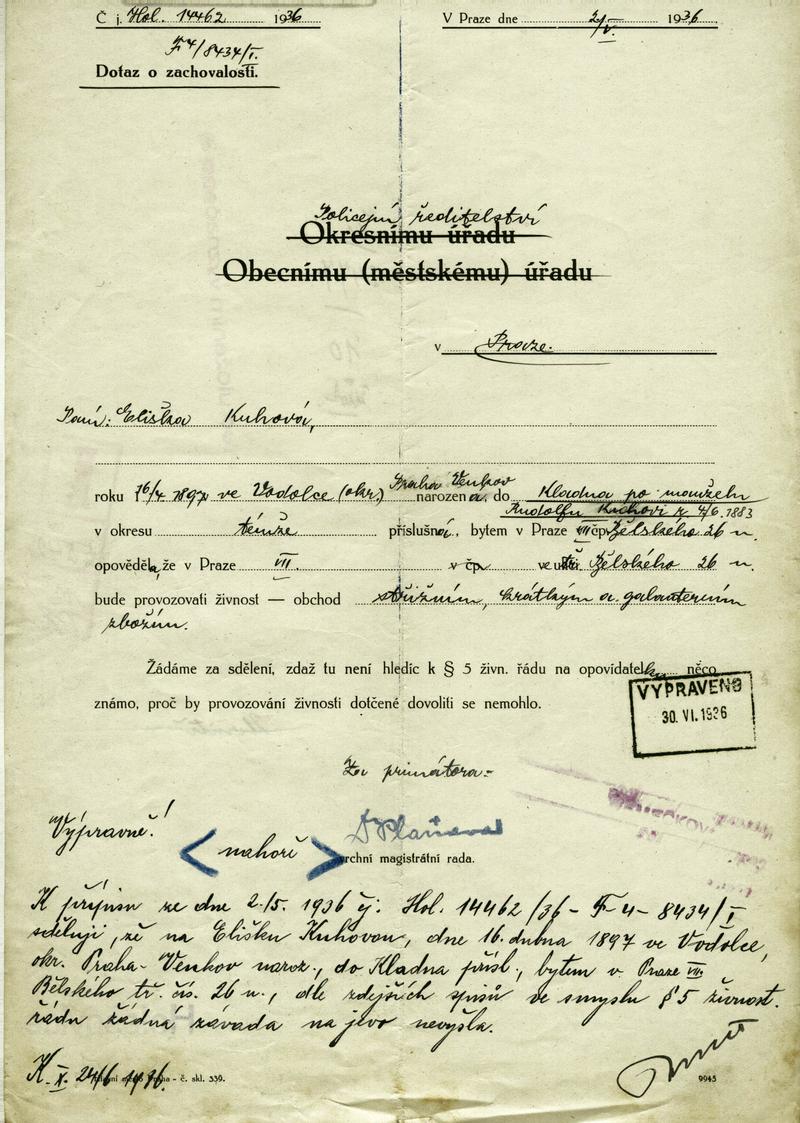 Č j. Hol. 14462 1936 V Praze dne 2/V. 1936
F4/8434/I.
Dotaz o zachovalosti.
Policejní ředitelství
Okresnímu úřadu
Obecnímu (městskému) úřadu
v Praze.
Paní: Eliška Kuhová,
Praha Venkov
roku 16/4 1897 ve Vodolce (okr.) narozena, do Kladna po manželu
Rudolfu Kuhovi z 4/6. 1883
v okresu témže příslušná, bytem v Praze VII čp. Bělského 26 n.
opověděla, že v Praze VII. v čp. ve tř. Bělského 26 n.
bude provozovati živnost — obchod střižním, krátkým a galanterním
zbožím.
Žádáme za sdělení, zdaž tu není hledíc k § 5 živn. řádu na opovídatelku něco
známo, proč by provozování živnosti dotčené dovoliti se nemohlo.
VYPRAVENO
30. VI. 1936
Za primátora:
Výpravně!
nahoře
vrchní magistrátní rada.
K přípisu ze dne 2./5. 1936 čj: Hol. 14462/36 - F-4- 8434/I
sděluji, že na Elišku Kuhovou, dne 16. dubna 1897 ve Vodolce,
okr. Praha-Venkov naroz., do Kladna přísl., bytem v Praze VII.
Bělského tř. čís. 26 n., dle zdejších spisů ve smyslu § 5 živnost.
řádu žádná závada na jevo nevyšla.
K. II. 24/6 1936.
- č. skl. 339.
9945